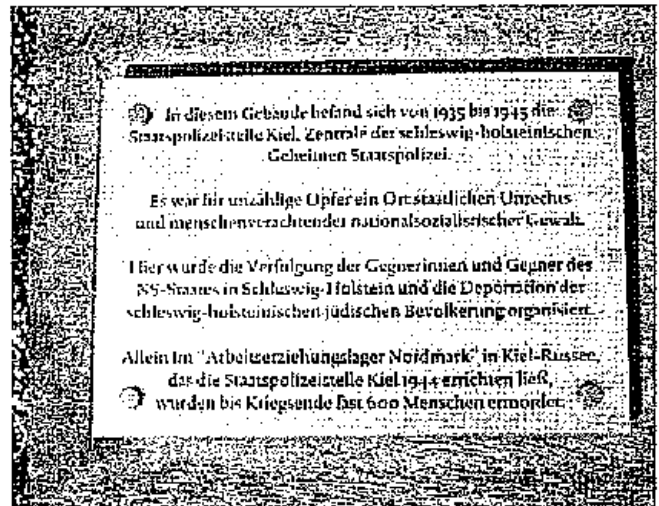 In diesem Gebäude befand sich von 1935 bis 1945 die
Staatspolizeistelle Kiel, Zentrale der schleswig-holsteinischen
Geheimen Staatspolizei.
Es war für unzählige Opfer ein Ort staatlichen Unrechts
und menschenverachtender nationalsozialistischer Gewalt.
Hier wurde die Verfolgung der Gegnerinnen und Gegner des
NS-Staates in Schleswig-Holstein und die Deportation der
schleswig-holsteinischen jüdischen Bevölkerung organisiert.
Allein im "Arbeitserziehungslager Nordmark" in Kiel-Russee,
das die Staatspolizeistelle Kiel 1944 errichten ließ,
wurden bis Kriegsende fast 600 Menschen ermordet.